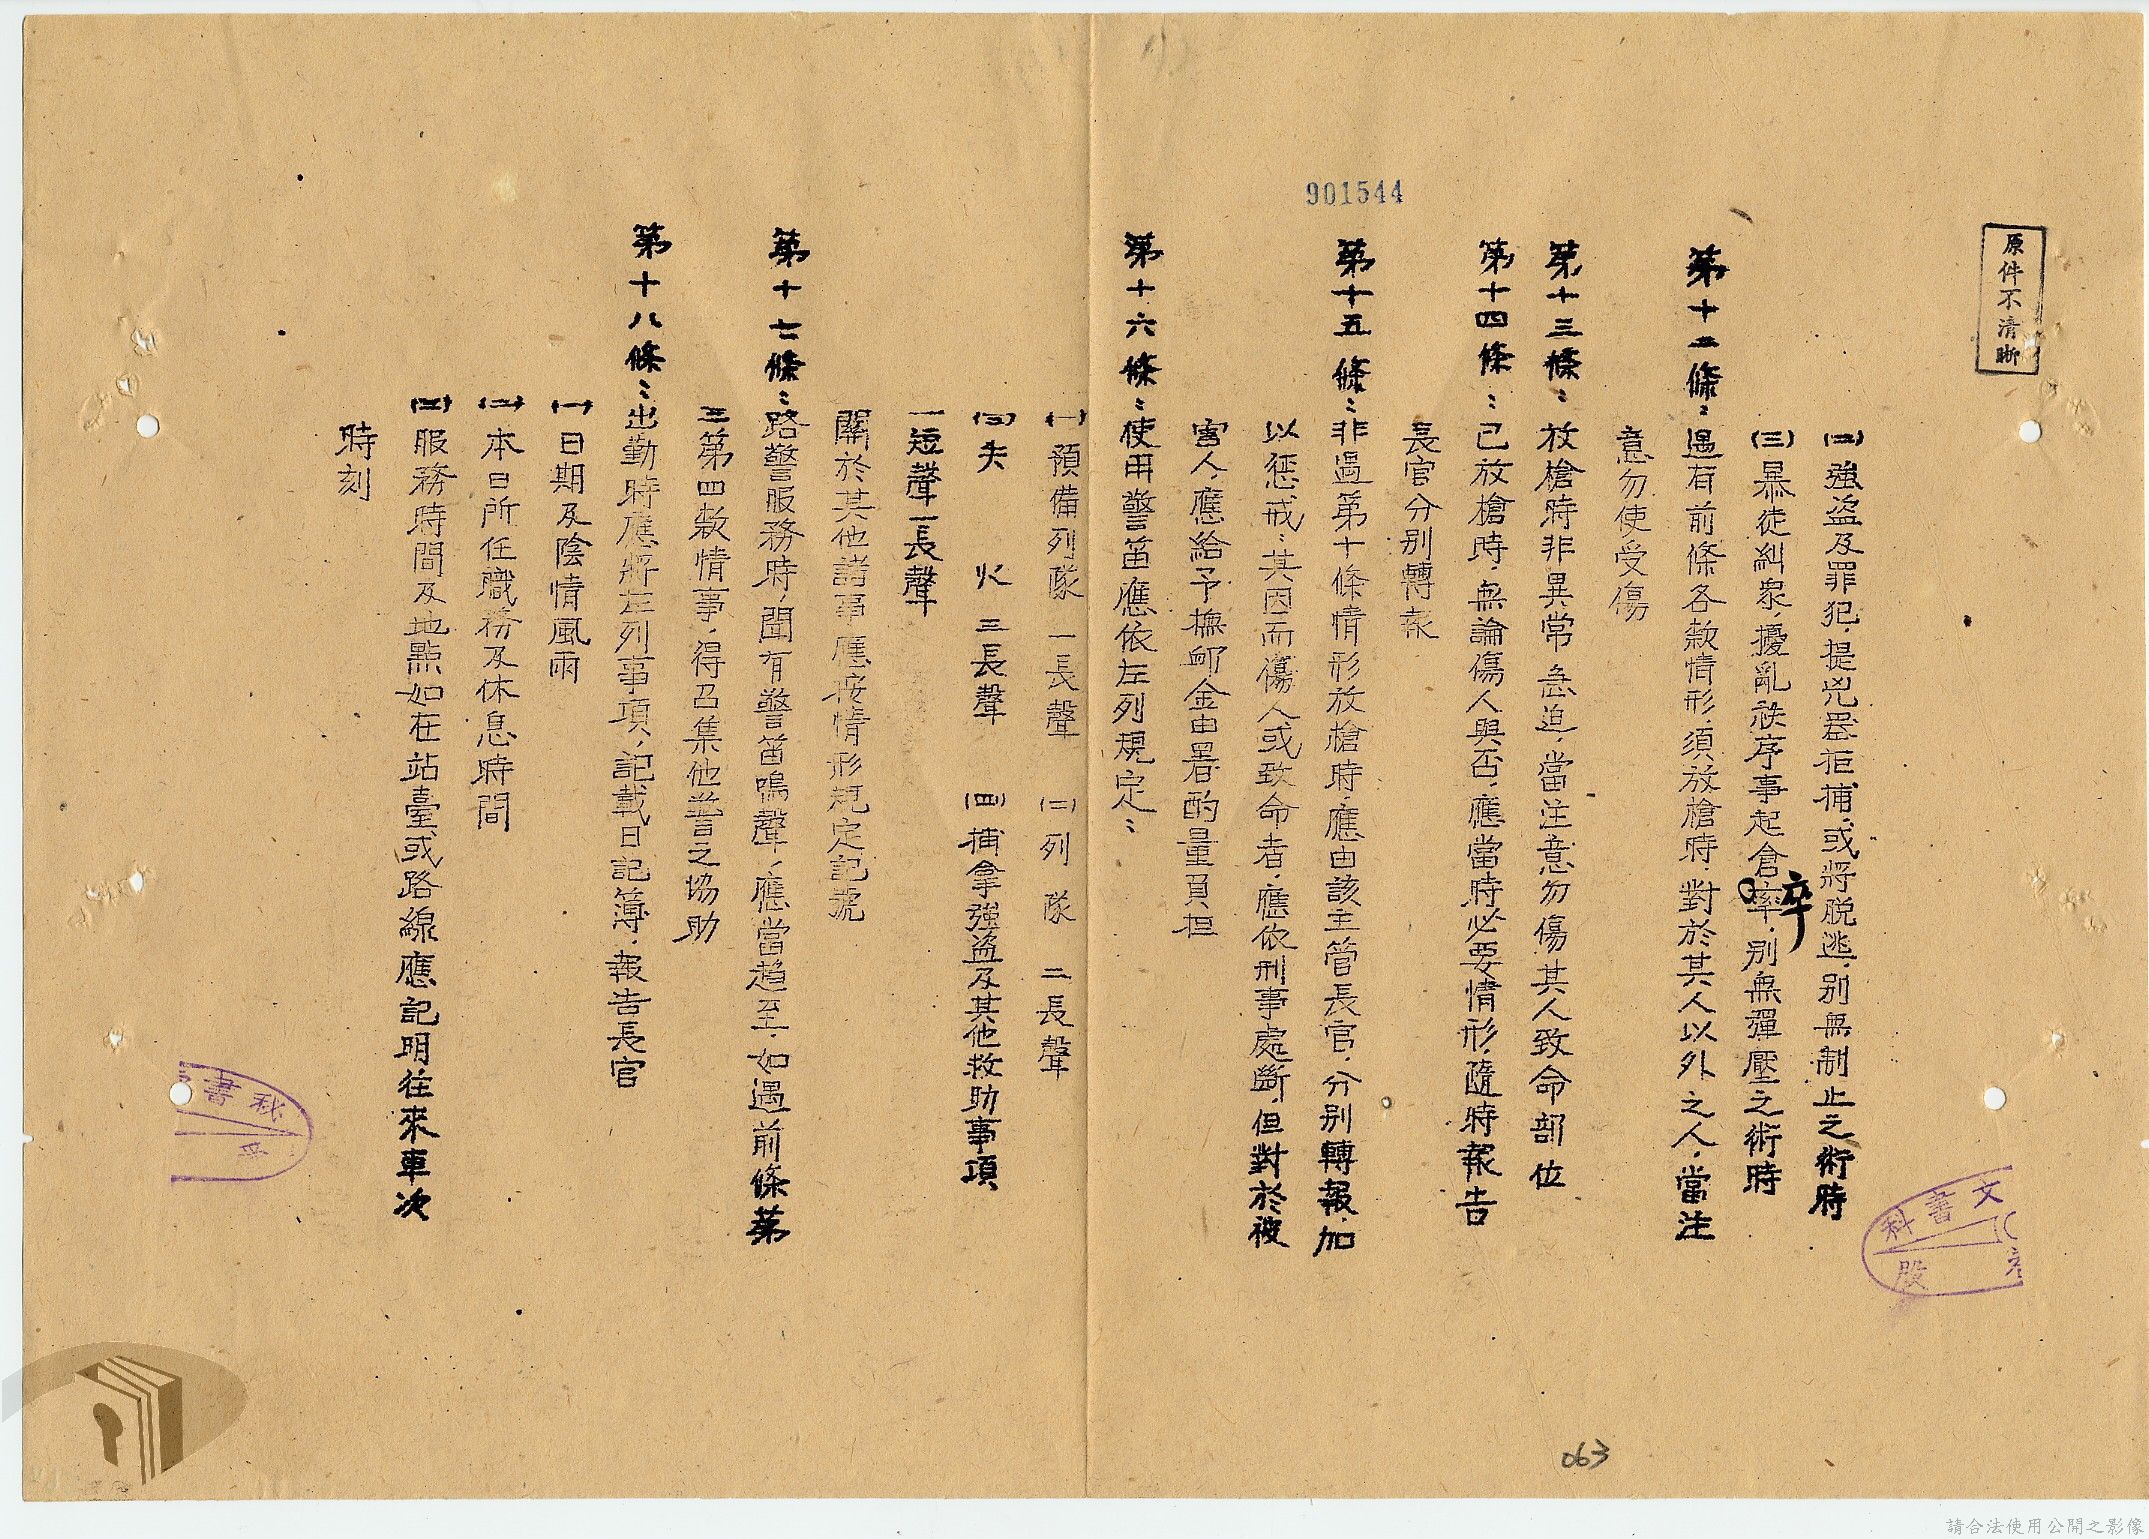 原件不清晰
901544
(二)強盜及罪犯，提兇器拒捕，或將脱逃，别無制止之術時
(三)暴徒糾衆，擾亂秩序事起倉卒，别無彈壓之術時
第十二條：遇有前條各款情形，須放槍時，對於其人以外之人，當注
意勿使受傷
第十三條：放槍時非異常急迫，當注意勿傷其人致命部位
第十四條：已放槍時，無論傷人與否，應當時必要情形，隨時報告
長官分别轉報
第十五條：非遇第十條情形放槍時，應由該主管長官，分别轉報，加
以惩戒，其因而傷人或致命者，應依刑事處斷，但對於被
害人，應給予撫卹金由署酌量負担
第十六條：使用警笛應依左列規定：
(一)預備列隊 一長聲 (二)列隊 二長聲
(三)失火 三長聲 (四)捕拿強盜及其他救助事項
一短聲一長聲
關於其他諸事應按情形規定記號
第十七條：路警服務時，聞有警笛鳴聲，應當趋至，如遇前條第
三第四款情事，得召集他警之協助
第十八條：出勤時應將左列事項，記載日記簿，報告長官
(一)日期及陰情風雨
(二)本日所任職務及休息時間
(三)服務時間及地點如在站臺或路線應記明往來車次
時刻
文書科
股
秘書
063
請合法使用公開之影像